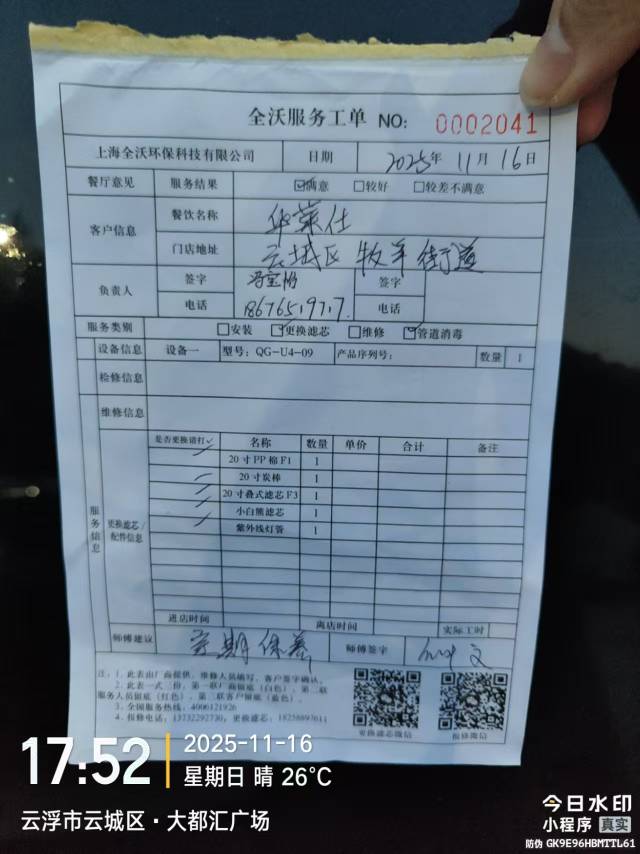 全沃服务工单 NO: 0002041
上海全沃环保科技有限公司 日期 2025年 11月 16日
餐厅意见 服务结果 ☑满意 □较好 □较差不满意
客户信息 餐饮名称 华莱仕
门店地址 云城区 牧羊街道
负责人 签字 签字
电话 电话
服务类别 □安装 ☑更换滤芯 □维修 ☑管道消毒
设备信息 设备一 型号: QG-U4-09 产品序列号: 数量 1
检修信息
维修信息
服务信息 更换滤芯/配件信息
是否更换请打✓ 名称 数量 单价 合计 备注
20寸PP棉F1 1
20寸炭棒 1
20寸叠式滤芯F3 1
小白熊滤芯 1
紫外线灯管 1
进店时间 离店时间 实际工时
师傅建议 定期保养 师傅签字
注: 1、此表由厂商提供、维修人员填写、客户签字确认。
2、此表一式三份, 第一联厂商留底(白色)、第二联
服务人员留底(红色)、第三联客户留底(蓝色)。
3、全国服务热线: 4006121926
4、报修电话: 13232292730, 更换滤芯: 18258897611
更换滤芯微信 报修微信
17:52 2025-11-16
星期日 晴 26℃
云浮市云城区·大都汇广场
今日水印
小程序 真实
防伪 GK9E96HBMITTL61